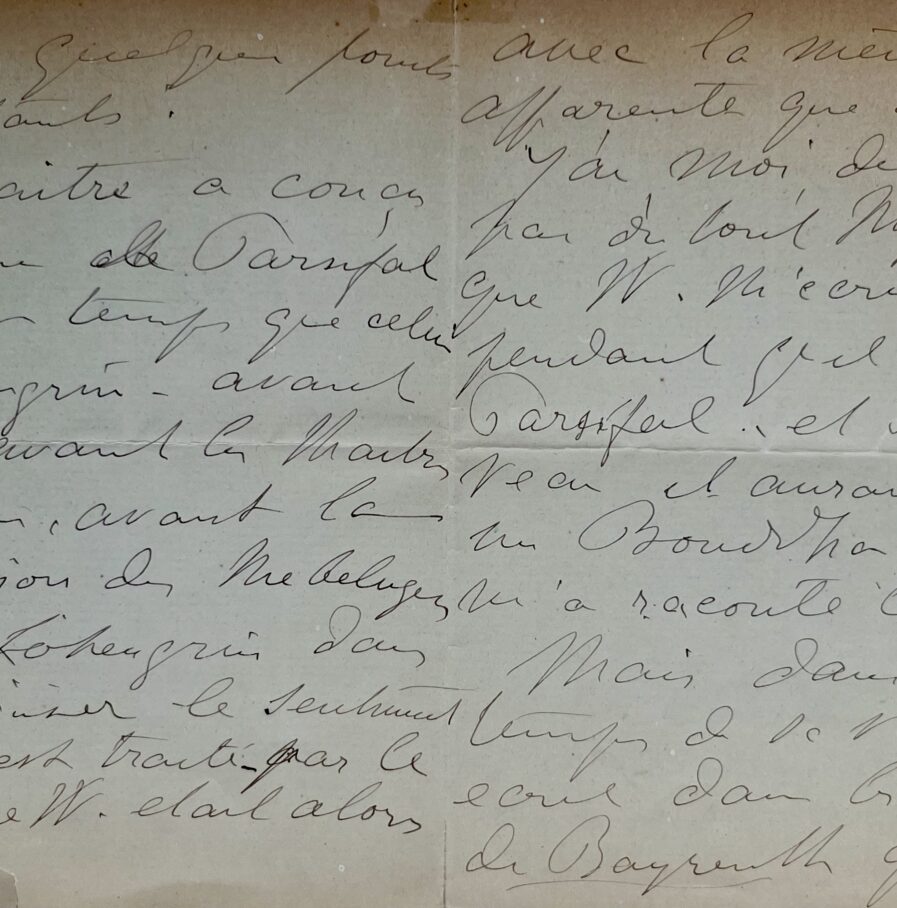 Quelques points
tants.
aitre a conçu
de Parsifal
temps que celui
ngrin - avant
avant les Maitres
, avant la
sion des Niebelugen
Lohengrin dans
le sentiment
est traité par le
e W. etait alors
avec la mêm
apparente que
J'ai moi de
par du tout
que W. m'écri
pendant qu'il
Parsifal . et
veau il aurai
un Bouddha
m'a raconté l
Mais dans
temps de sa v
ecrit dans le
de Bayreuth q